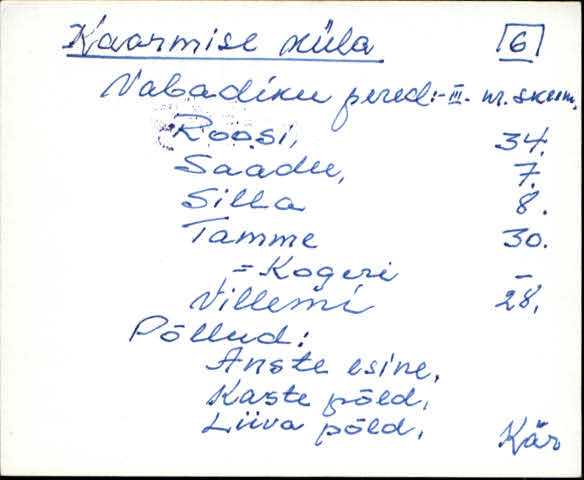 Kaarmise küla [6]
Vabadiku pered:- III. nr. skeem.
Roosi, 34.
Saadu, 7.
Silla 8.
Tamme 30.
= Kogeri –
Villemi 28.
Põllud:
Anste esine,
Kaste põld,
Liiva põld, Kär